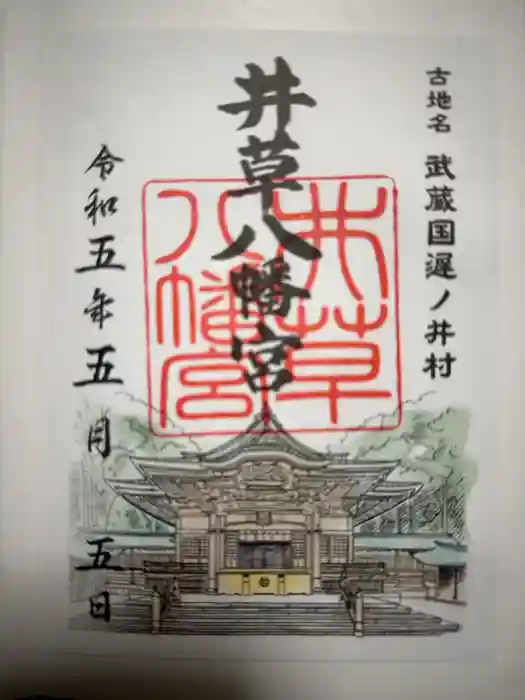 古地名 武蔵国遅ノ井村
井草八幡宮
井草
八幡宮
令和五年五月五日